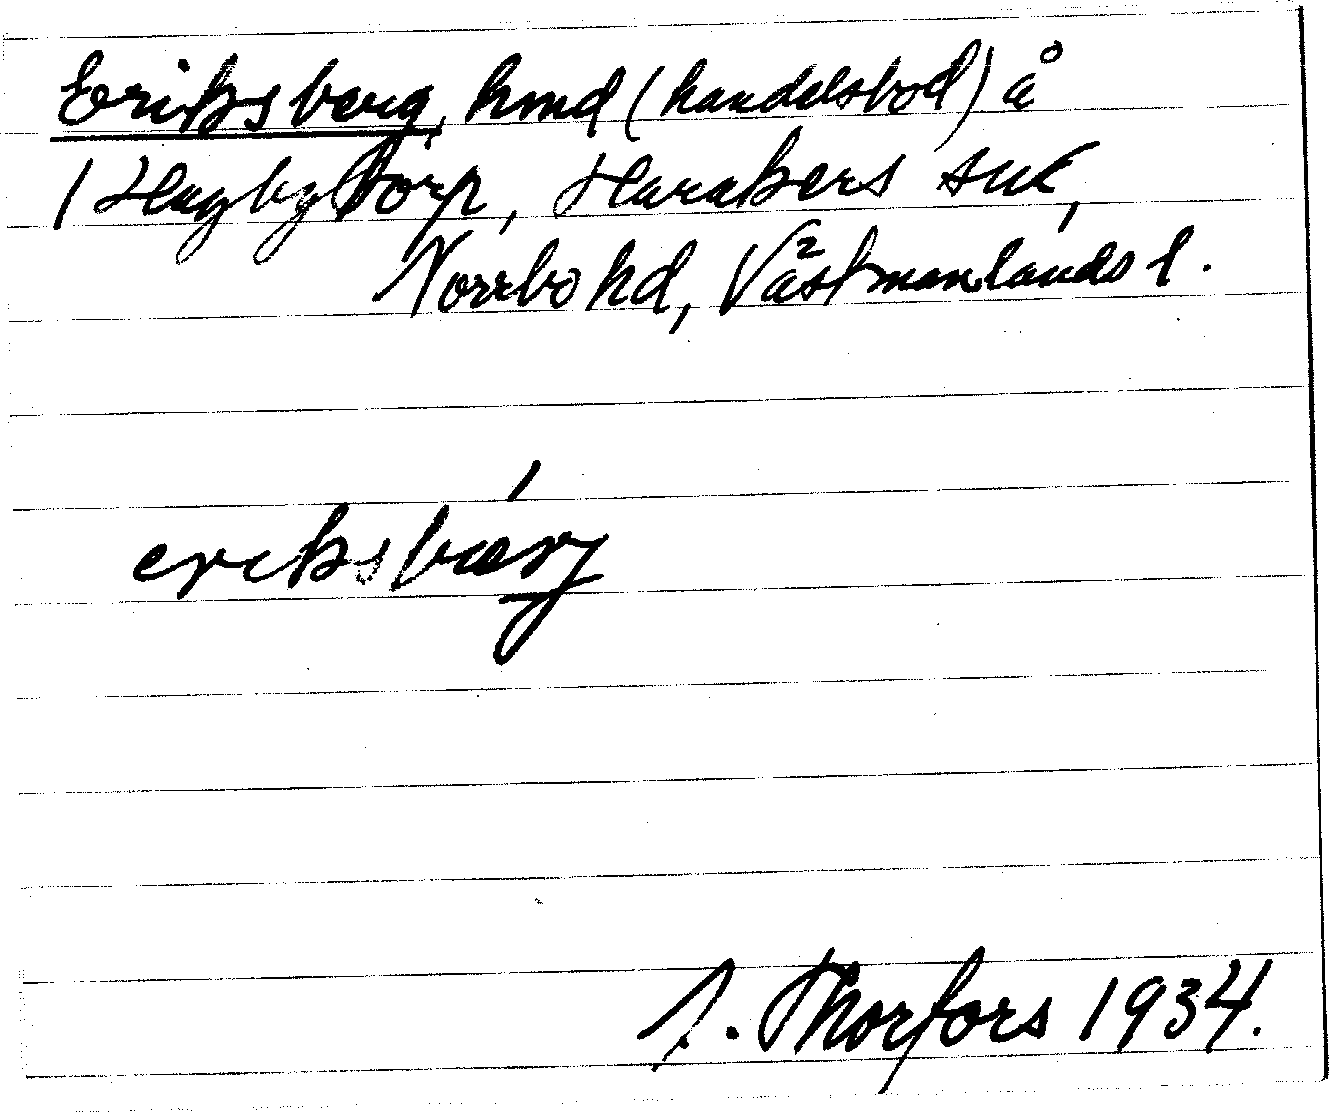 Eriksberg, hmd (handelsbod) å
1 Hagbytorp, Harakers sn,
Norrbo hd, Västmanlands l.
eriksbærj
J. Thorfors 1934.